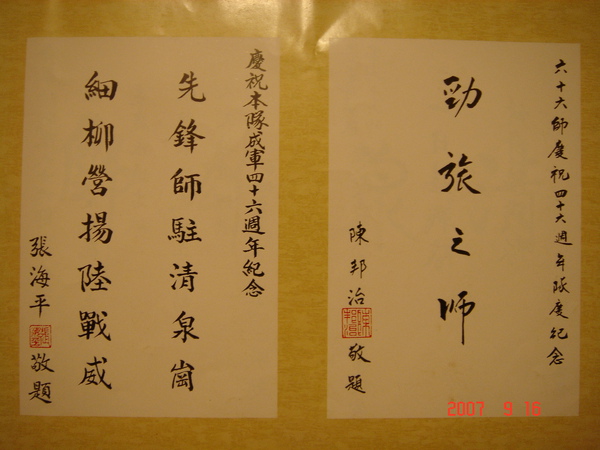 六十六師慶祝四十六週年隊慶紀念
勁旅之师
陳邦治敬題
慶祝本隊成軍四十六週年紀念
先鋒師駐清泉崗
細柳營揚陸戰威
張海平敬題
2007 9 16